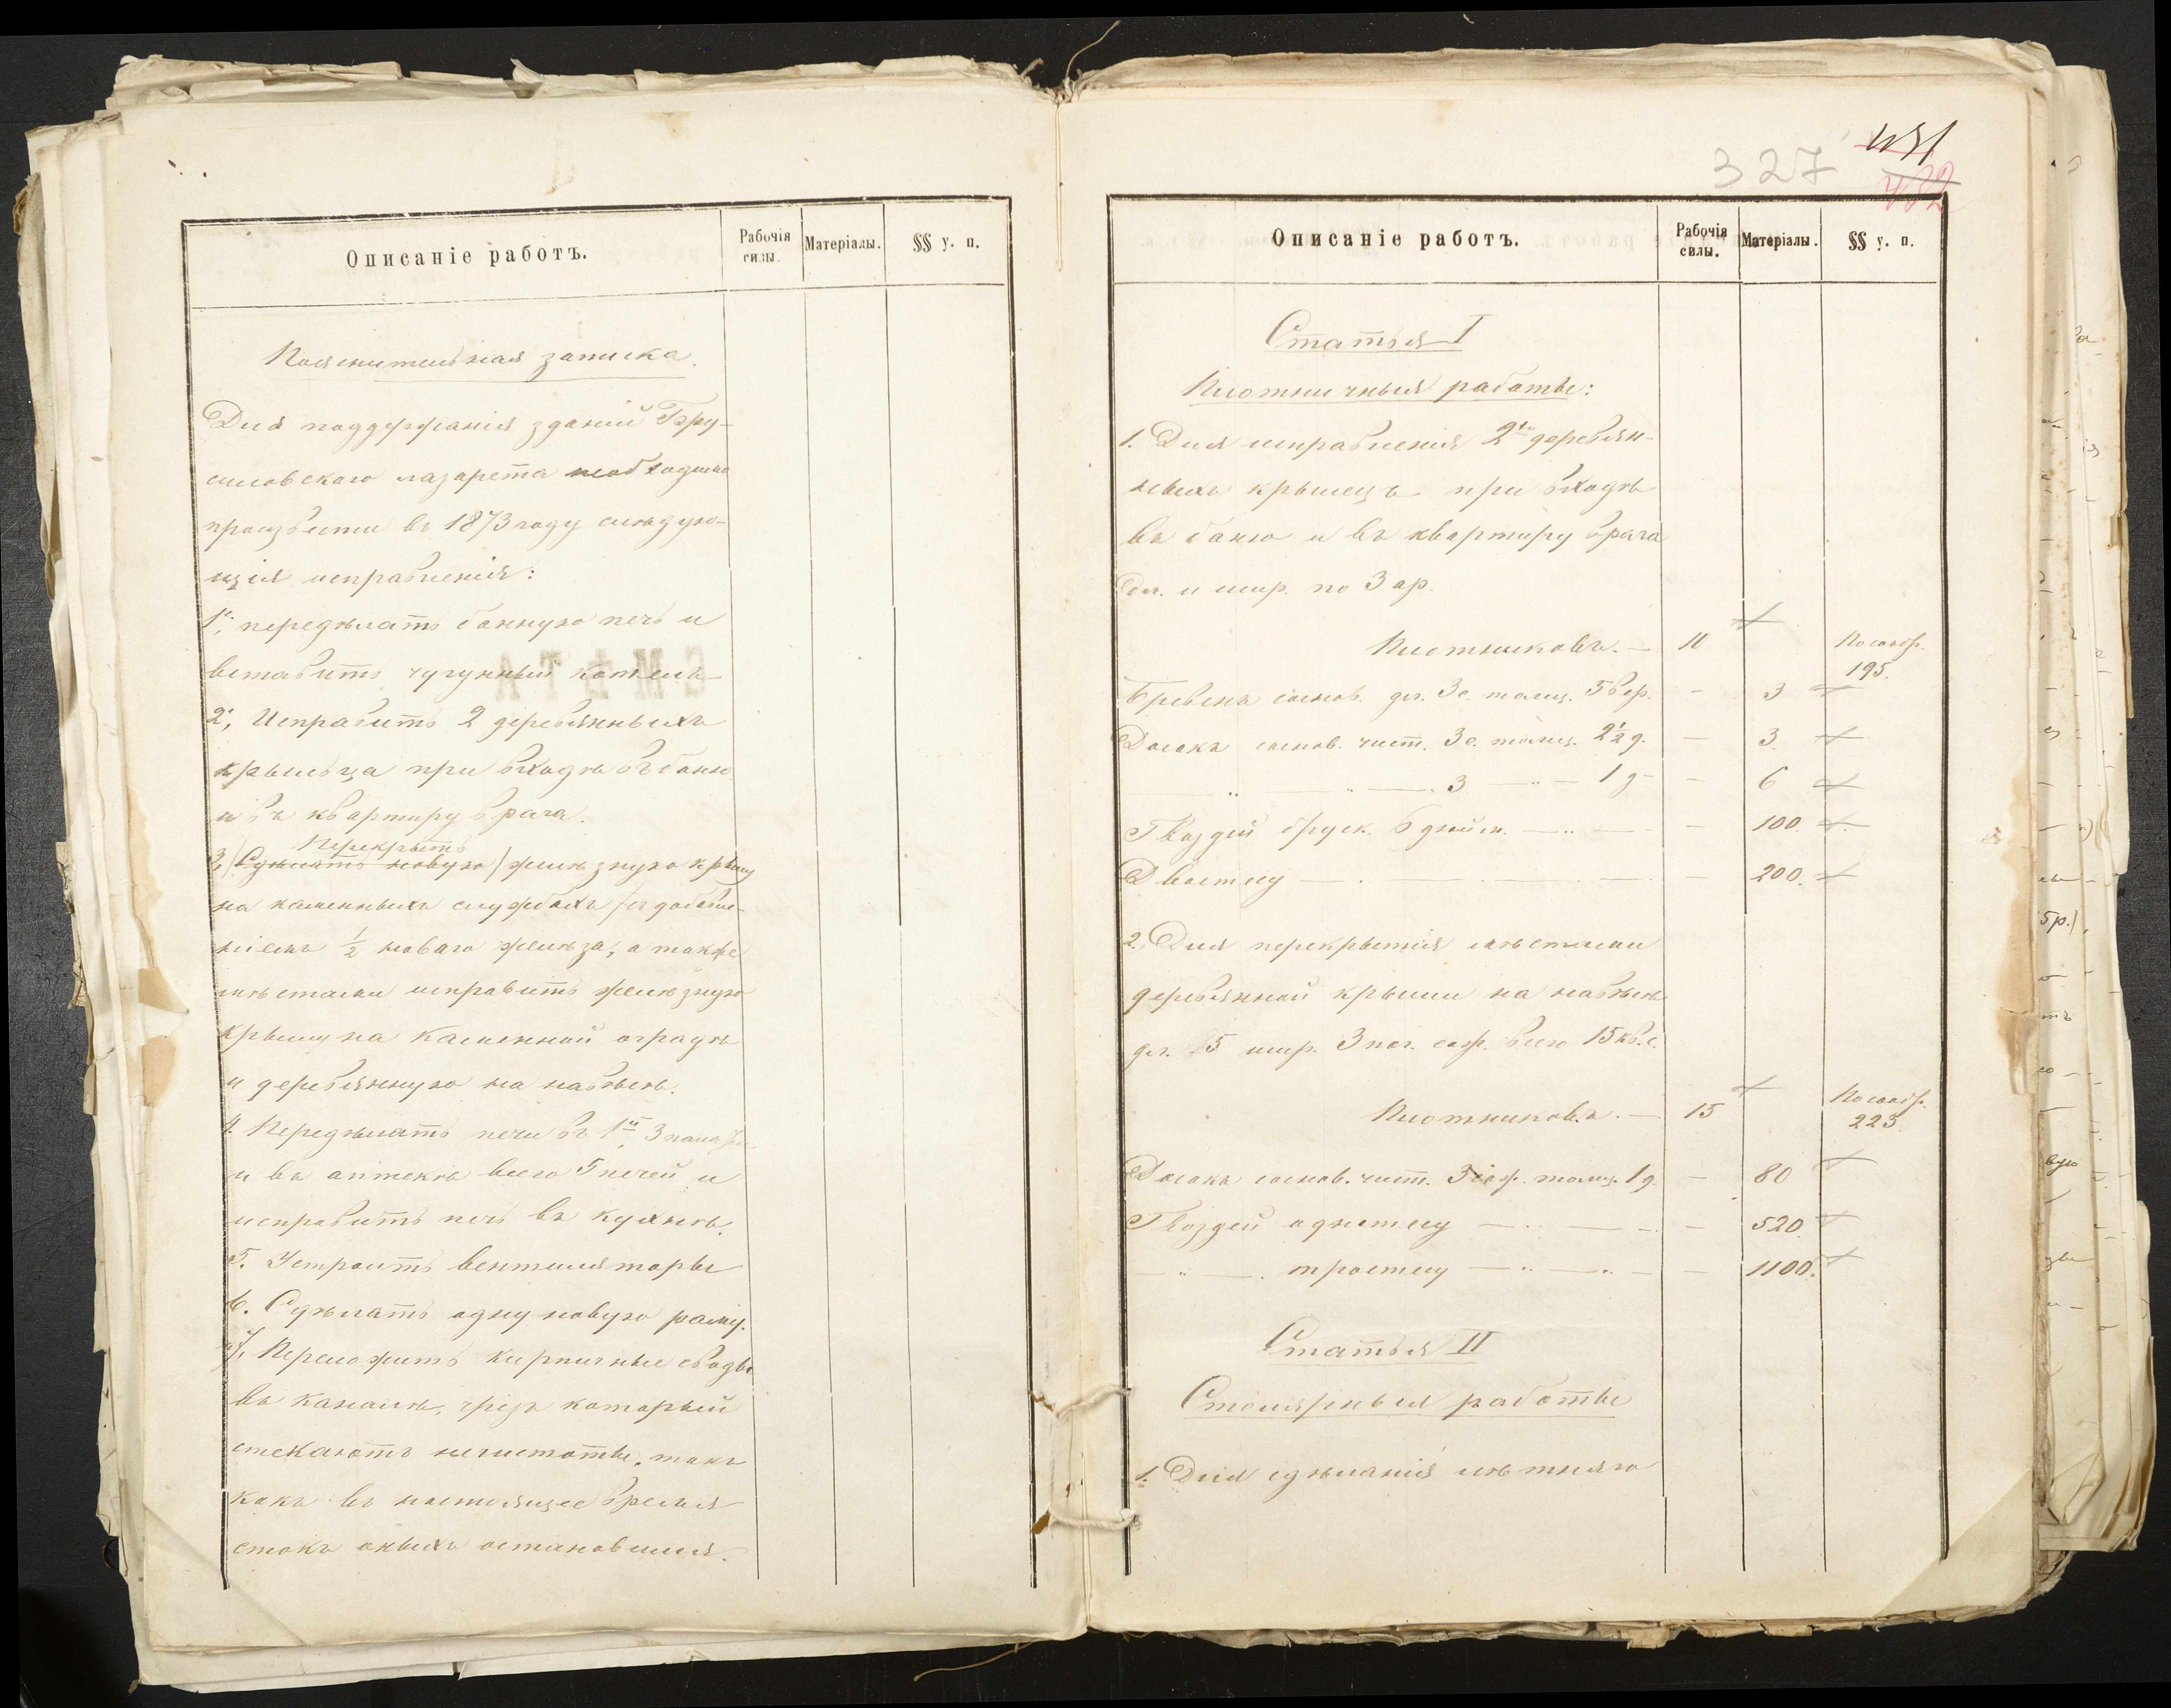 Описаніе работъ.
Рабочія силы.
Матеріалы.
§§ у. п.
Пояснительная записка.
Для поддержанія зданій Бру-
силовскаго лазарета необходимо
произвести въ 1873 году слѣдую-
щія исправленія:
1., передѣлать банную печь и
вставить чугунный котелъ
2., Исправить 2 деревянныхъ
крыльца при входѣ въ баню
и въ квартиру врача.
Перекрыть
3,) Сдѣлать новую) желѣзную крышу
на каменныхъ службахъ съ добавле-
ніемъ 1/2 новаго желѣза, а также
мѣстами исправить желѣзную
крышу на каменной оградѣ
и деревянную на навѣсѣ.
4. Передѣлать печи въ 1й, 3
и въ аптекѣ всего 5 печей и
исправить печь въ кухнѣ.
5. Устроить вентиляторы
6. Сдѣлать одну новую раму.
7. Переложить кирпичные своды
въ каналѣ, чрезъ который
стекаютъ нечистоты, такъ
какъ въ настоящее время
стокъ оныхъ остановился.
327
431
432
Описаніе работъ.
Рабочія силы.
Матеріалы.
§§ у. п.
Статья I
Плотничныя работы:
1. Для исправленія 2хъ деревян-
ныхъ крылецъ при входѣ
въ баню и въ квартиру врача
дл. и шир. по 3 ар.
Плотниковъ. — 11 По сообр. 195.
Бревенъ соснов. дл. 3 с. толщ. 5 вер. — 3
Досокъ соснов. чист. 3 с. толщ. 2 1/2 д. — 3.
— „ — „ — . 3 — „ — 1 д — — 6
Гвоздей бруск. 6 дюйм. — „ — — 100.
Двоетесу — . — — — 200.
2. Для перекрытія мѣстами
деревянной крыши на навѣсѣ
дл. 5 шир. 3 пог. саж. всего 15 кв. с.
Плотниковъ. — 15 По сообр. 223.
Досокъ соснов. чист. 3 саж. толщ. 1 д. — 80
Гвоздей однотесу — . — — . — 520.
— „ — . троетесу — „ — „ — — 1100.
Статья II
Столярныя работы
1. Для сдѣланія лѣтняго